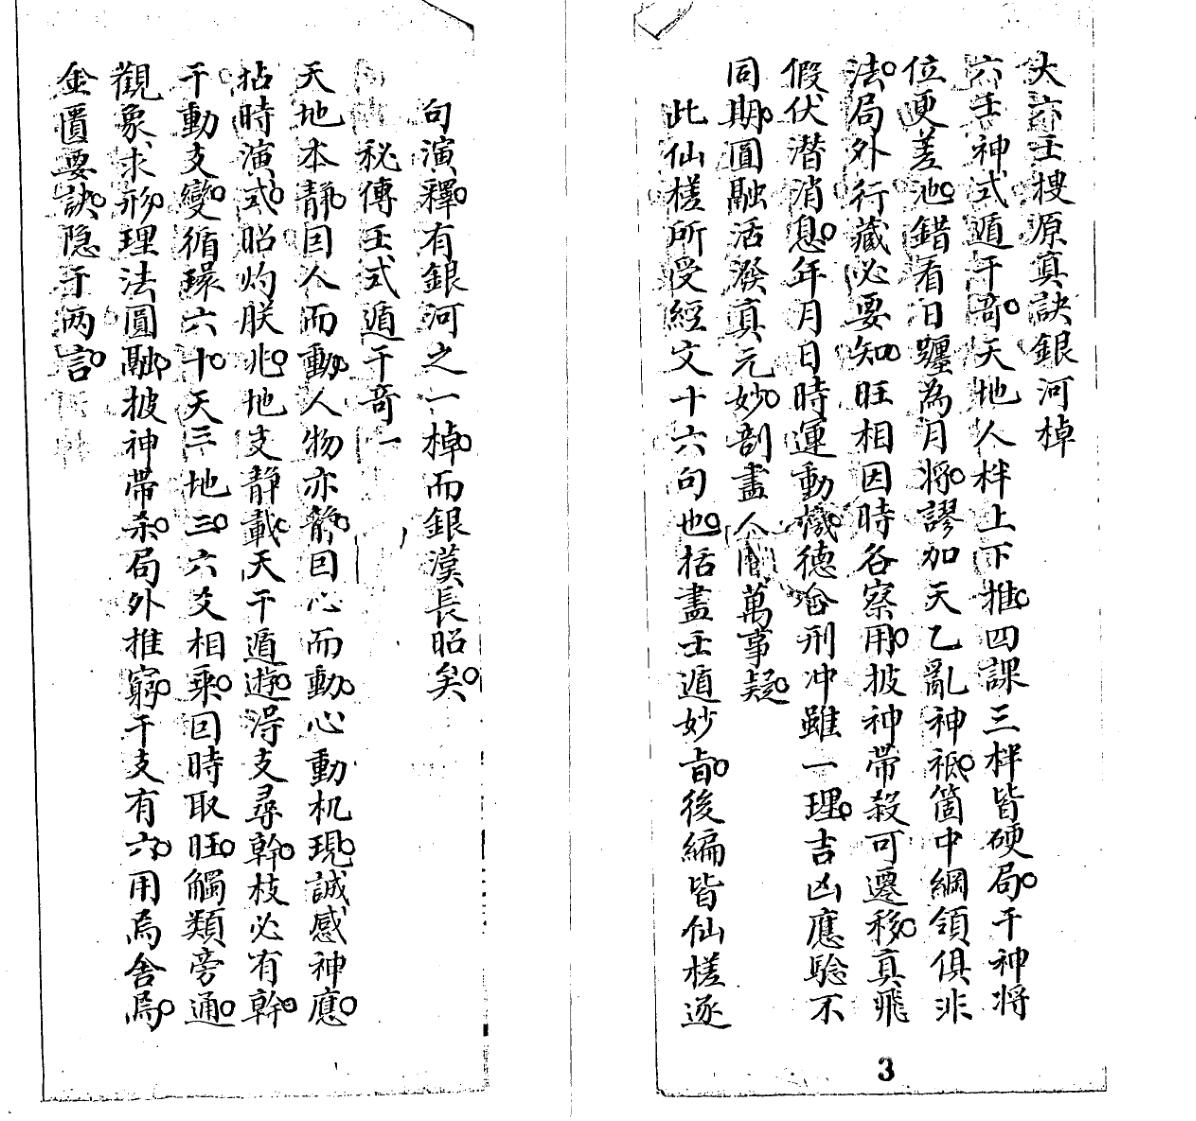 大六壬搜源真訣銀河棹
六壬神式遁干奇。天地人柈上下推。四課三柈皆硬局。干神将
位更差池。錯看日躔為月将。謬加天乙亂神祗。箇中綱領俱非
法。局外行藏必要知。旺相因時各察用。披神帶殺可遷移。真飛
假伏潜消息。年月日時運動機。德合刑冲雖一理。吉凶應騐不
同期。圓融活潑真元妙。剖盡人間萬事疑。
此仙槎所受經文十六句也。括盡壬遁妙旨。後編皆仙槎逐
句演釋。有銀河之一棹。而銀漢長昭矣。
秘傳壬式遁干竒一
天地本靜。因人而動。人物亦靜。因心而動。心動机現。誠感神應。
拈時演式。昭灼朕兆。地支靜載。天干遁遊。淂支尋幹。枝必有幹。
干動支變。循環六十。天三地三。六爻相乘。因時取旺。觸類旁通。
觀象求形。理法圓融。披神帶杀。局外推窮。干支有六。用爲舍爲。
金匱要訣。隐于两言。
3